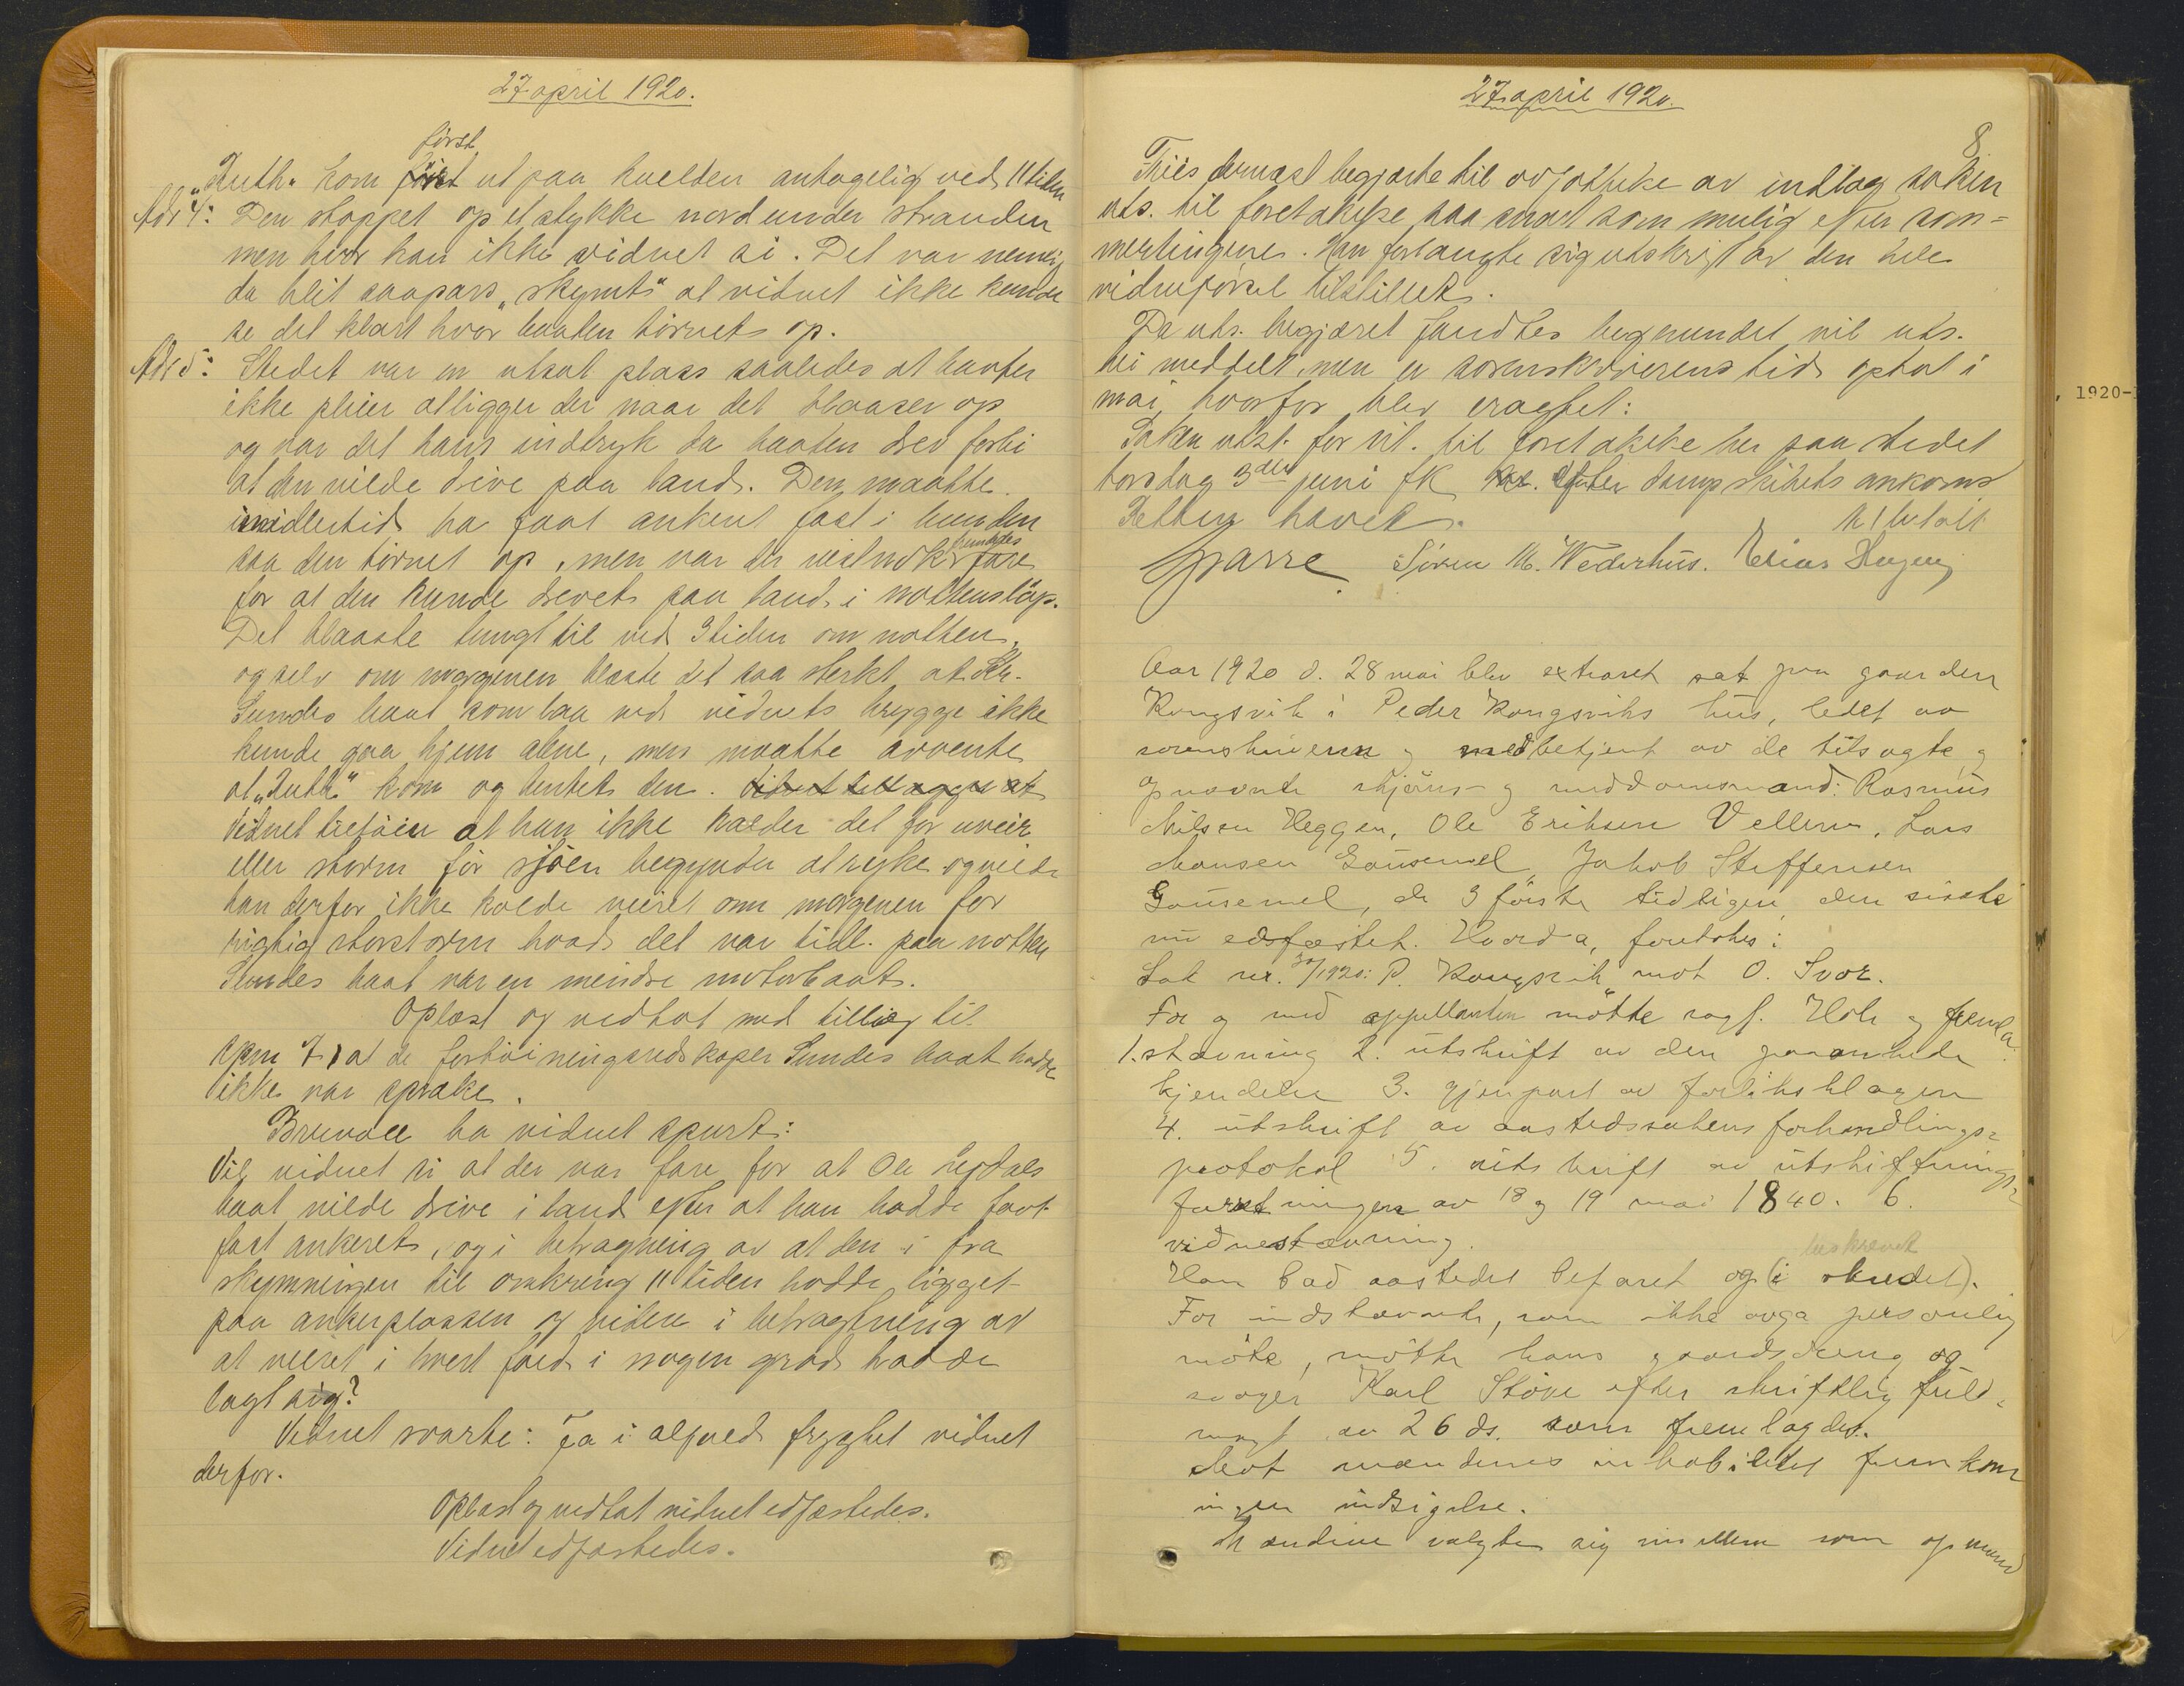 27 april 1920.
først
"Ruth" kom ut paa kvelden antagelig ved 11 tiden
Ad sp 4: Den stoppet op et stykke nord under stranden
men hvor kan ikke vidnet si. Det var nemlig
da blit saapas "skymt" at vidnet ikke kunde
se det klart hvor baaten tørnet op.
Ad 5: Stedet var en utsat plass saaledes at baater
ikke pleier at ligge der naar det blaaser op
og var det hans indtryk da baaten drev forbi
at den vilde drive paa land. Den maatte
imidlertid ha faat ankeret fast i bunden
saa den tørnet op, men var der vistnok fare
for at den kunde drevet paa land i nattens løp.
Det blaaste tungt til ved 3 tiden om natten
og selv om morgenen blaaste det saa sterkt at
Sundes baat som laa ved vidnets brygge ikke
kunde gaa hjem alene, men maatte avvente
at "Ruth" kom og hentet den.
Vidnet tilføier at han ikke kalder det for uveir
eller storm før sjøen begynder at ryke og vilde
han derfor ikke kalde veiret om morgenen for
rigtig storstorm hvad det var tidl. paa natten
Sundes baat var en mindre motorbaat.
Oplæst og vedtat med tillæg til
spm 7) at de fortøiningsredskaper Sundes baat hadde
ikke var sprake.
Brunvoll ba vidnet spurt:
Vil vidnet si at der var fare for at Ole Legdals
baat vilde drive i land efter at han hadde faat
fast ankeret, og i betragtning av at den i fra
skymningen til omkring 11 tiden hadde ligget
paa ankerplassen og videre i betragtning av
at veiret i hvert fald i nogen grad hadde
lagt sig?
Vidnet svarte: Ja i alfald frygtet vidnet
derfor.
Oplæst og vedtat vidnet edfæstedes.
Vidnet edfæstedes.
27 april 1920.
8
Friis dernæst begjærte til avfattelse av indlæg saken
uts. til foretakelse saa snart som mulig efter som-
mertingene. Han forlangte sig utskrift av den hele
vidneførsel tilstillet.
Da uts. begjæret fandtes begrundet vil uts.
bli meddelt, men er sorenskriverens tid optat i
mai, hvorfor blev eragtet:
Saken utst. for vit. til foretakelse her paa stedet
torsdag 3die juni fk. efter dampskibets ankomst
Retten hævet.
Sparre Søren M. Wederhus. Elias Haugen
Aar 1920 d. 28 mai blev extraret sat paa gaarden
Kongsvik i Peder Kongsviks hus, ledet av
sorenskriveren og medbetjent av de tilsagte og
opnævnte skjøns- og meddomsmænd: Rasmus
Nilsen Heggen, Ole Eriksen Vellene, Lars
Hansen Gausemel, Jakob Steffensen
Gausemel, de 3 første tidligere, den sidste
nu edsfæstet. Hvorda, foretokes:
Sak nr. 30/1920: P. Kongsvik mot O. Svor.
For og med appellanten møtte sagf. Hole og fremla
1. stævning 2. utskrift av den paaankede
kjendelse 3. gjenpart av forlikshlagen
4. utskrift av aastedssakens forhandlings-
protokol 5. utskrift av utskiftnings-
forretningen av 18 og 19 mai 1840. 6.
vidnestævning.
beskrevet
Han bad aastedet befaret og (i skudet).
For indstævnte, som ikke avga personlig
møte, møtte hans gaardsdreng og
svoger Karl Støve efter skriftlig fuld-
magt av 26 ds. som fremlagdes.
Mot mændenes habilitet fremkom
ingen indsigelse.
Mændene valgte sig imellem som opmand